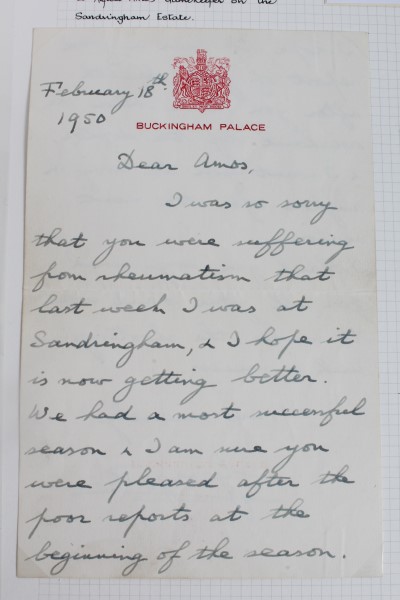 Gamekeeper on the
Sandringham Estate.
February 18th
1950
BUCKINGHAM PALACE
Dear Amos,
I was so sorry
that you were suffering
from rheumatism that
last week I was at
Sandringham, & I hope it
is now getting better.
We had a most successful
season & I am sure you
were pleased after the
poor reports at the
beginning of the season.